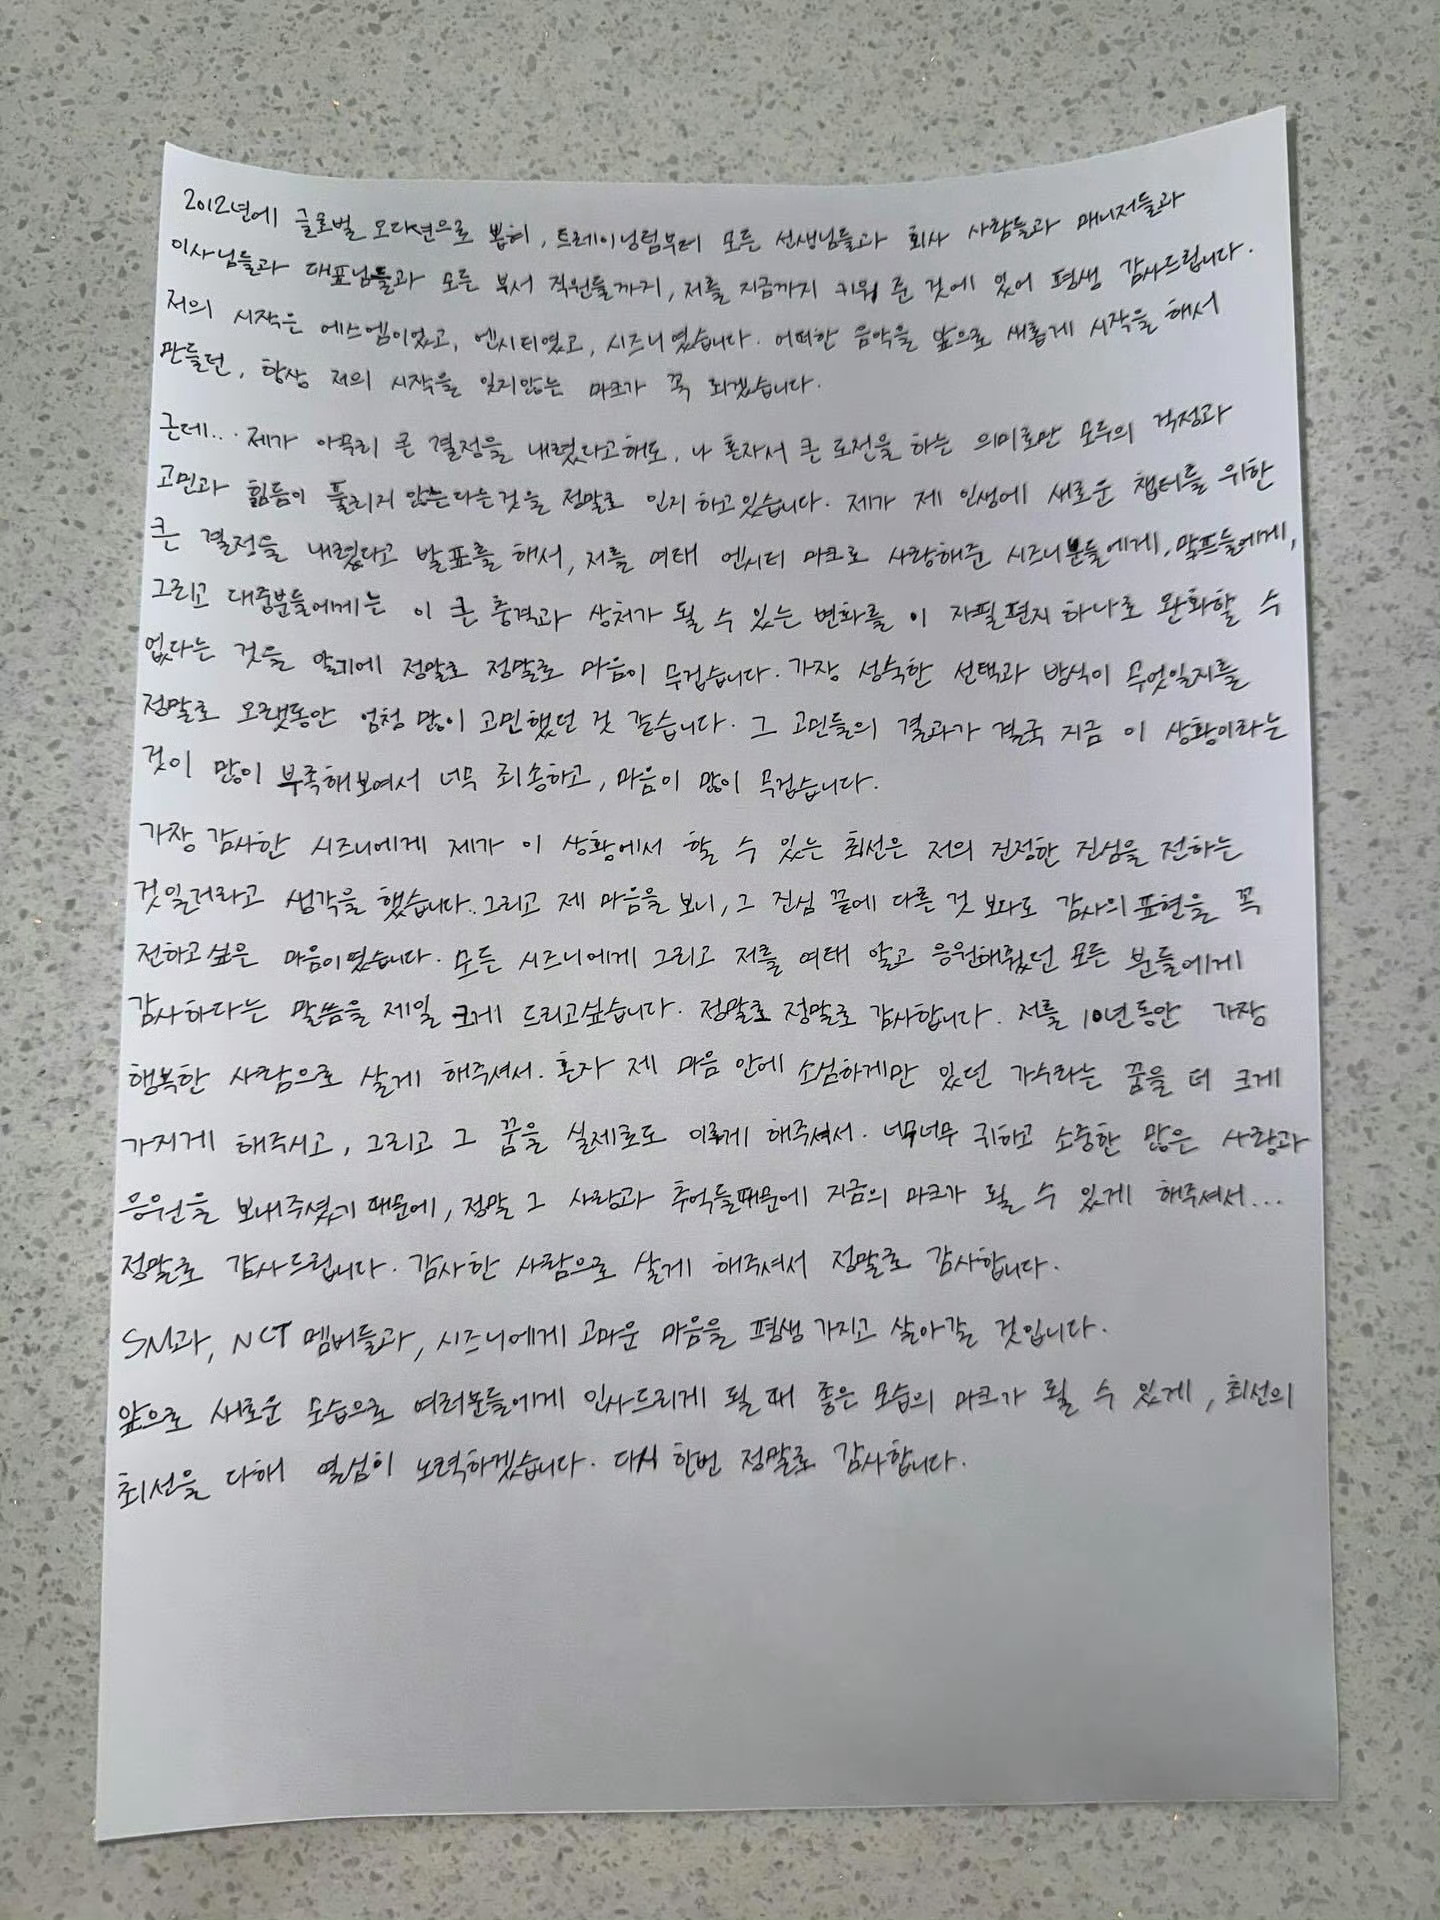 2012년에 글로벌 오디션으로 뽑혀, 트레이닝팀부터 모든 선생님들과 회사 사람들과 매니저들과
이사님들과 대표님들과 모든 부서 직원들까지, 저를 지금까지 키워 준 것에 있어 평생 감사드립니다.
저의 시작은 에스엠이었고, 엔시티였고, 시즈니였습니다. 어떠한 음악을 앞으로 새롭게 시작을 해서
만들던, 항상 저의 시작을 잊지않는 마크가 꼭 되겠습니다.
근데... 제가 아무리 큰 결정을 내렸다고해도, 나 혼자서 큰 도전을 하는 의미로만 모두의 걱정과
고민과 힘듬이 풀리지 않는다는것을 정말로 인지하고있습니다. 제가 제 인생에 새로운 챕터를 위한
큰 결정을 내렸다고 발표를 해서, 저를 여태 엔시티 마크로 사랑해준 시즈니분들에게, 맠프들에게,
그리고 대중분들에게는 이 큰 충격과 상처가 될 수 있는 변화를 이 자필편지 하나로 완화할 수
없다는 것을 알기에 정말로 정말로 마음이 무겁습니다. 가장 성숙한 선택과 방식이 무엇일지를
정말로 오랫동안 엄청 많이 고민했던 것 같습니다. 그 고민들의 결과가 결국 지금 이 상황이라는
것이 많이 부족해보여서 너무 죄송하고, 마음이 많이 무겁습니다.
가장 감사한 시즈니에게 제가 이 상황에서 할 수 있는 최선은 저의 진정한 진심을 전하는
것일거라고 생각을 했습니다. 그리고 제 마음을 보니, 그 진심 끝에 다른 것 보다도 감사의 표현을 꼭
전하고싶은 마음이였습니다. 모든 시즈니에게 그리고 저를 여태 알고 응원해줬던 모든 분들에게
감사하다는 말씀을 제일 크게 드리고싶습니다. 정말로 정말로 감사합니다. 저를 10년동안 가장
행복한 사람으로 살게 해주셔서. 혼자 제 마음 안에 소심하게만 있던 가수라는 꿈을 더 크게
가지게 해주시고, 그리고 그 꿈을 실제로도 이루게 해주셔서. 너무너무 귀하고 소중한 많은 사랑과
응원을 보내주셨기 때문에, 정말 그 사랑과 추억들때문에 지금의 마크가 될 수 있게 해주셔서...
정말로 감사드립니다. 감사한 사람으로 살게 해주셔서 정말로 감사합니다.
SM과, NCT 멤버들과, 시즈니에게 고마운 마음을 평생 가지고 살아갈 것입니다.
앞으로 새로운 모습으로 여러분들에게 인사드리게 될 때 좋은 모습의 마크가 될 수 있게, 최선의
최선을 다해 열심히 노력하겠습니다. 다시 한번 정말로 감사합니다.